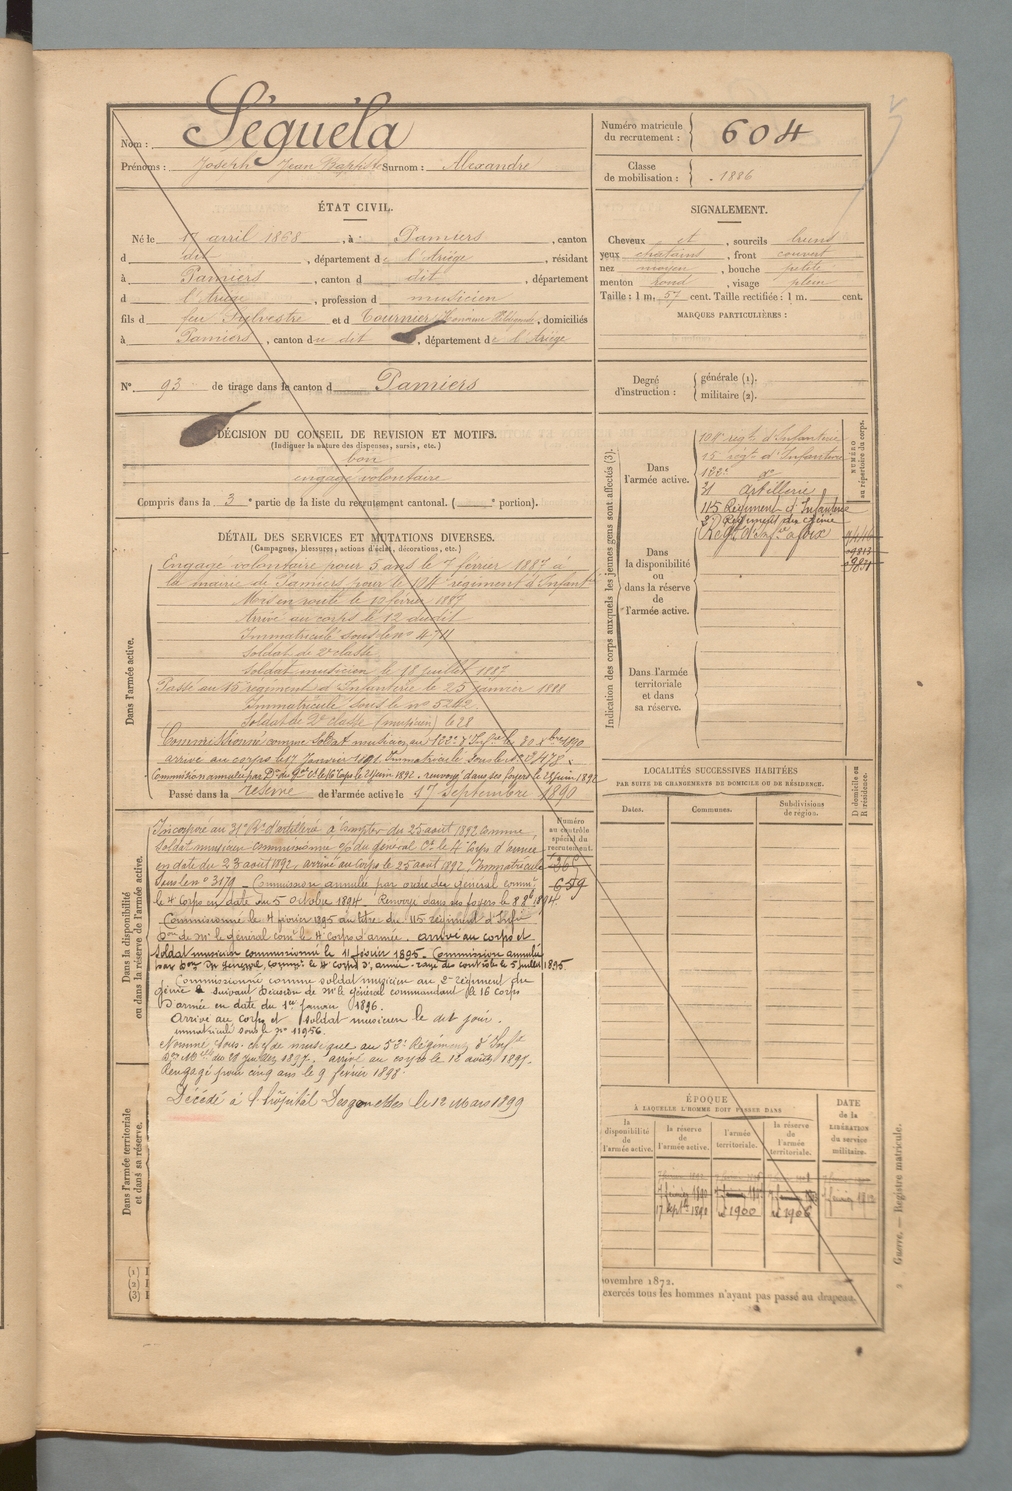 Nom : Séguéla
Prénoms : Joseph Jean Baptiste Surnom : Alexandre
Numéro matricule du recrutement : 604
Classe de mobilisation : 1886
ÉTAT CIVIL.
Né le 17 avril 1868, à Pamiers, canton
d dit, département de l'Ariège, résidant
à Pamiers, canton d dit, département
d l'Ariège, profession d musicien
fils d feu Sylvestre et d Tournier, domiciliés
à Pamiers, canton du dit, département de l'Ariège
N° 93 de tirage dans le canton d Pamiers
SIGNALEMENT.
Cheveux et, sourcils bruns
yeux chatains, front couvert
nez moyen, bouche petite
menton rond, visage plein
Taille : 1 m, 57 cent. Taille rectifiée : 1 m. cent.
MARQUES PARTICULIÈRES :
Degré d'instruction : générale (1).
militaire (2).
DÉCISION DU CONSEIL DE REVISION ET MOTIFS.
(Indiquer la nature des dispenses, sursis, etc.)
bon
engagé volontaire
Compris dans la 3e partie de la liste du recrutement cantonal. ( e portion).
DÉTAIL DES SERVICES ET MUTATIONS DIVERSES.
(Campagnes, blessures, actions d'éclat, décorations, etc.)
Dans l'armée active.
Engagé volontaire pour 5 ans le 7 février 1887 à
la mairie de Pamiers pour le régiment d'Infantie
Mis en route le 12 février 1887
Arrivé au corps le 12 dudit
Immatriculé sous le n° 4711
Soldat de 2e classe
Soldat musicien le 18 juillet 1887
Passé au 15 régiment d'Infanterie le 25 janvier 1888
Immatriculé sous le n° 5262
Soldat de 2e classe (musicien) le 28
Commissionné comme soldat musicien au 122e d'Infie le 30 Xbre 1890
arrivé au corps le 17 Janvier 1891 Immatriculé sous le n° 2478
Passé dans la réserve de l'armée active le 17 Septembre 1890
Indication des corps auxquels les jeunes gens sont affectés (3).
NUMÉRO au répertoire du corps.
Dans l'armée active.
15 régt d'Infanterie
122e do
31 artillerie
115 Régiment d'Infanterie
2e Régiment du génie
Regt d'Infie à Foix
Dans la disponibilité ou dans la réserve de l'armée active.
Dans l'armée territoriale et dans sa réserve.
LOCALITÉS SUCCESSIVES HABITÉES
PAR SUITE DE CHANGEMENTS DE DOMICILE OU DE RÉSIDENCE.
D domicile ou R résidence.
Dates. Communes. Subdivisions de région.
Dans la disponibilité ou dans la réserve de l'armée active.
Numéro au contrôle spécial du recrutement.
659
Incorporé au 31e Rt d'artillerie à compter du 25 août 1892 comme
Soldat musicien commissionné du général Ct le 4e Corps d'armée
en date du 23 août 1892, arrivé au Corps le 25 août 1892. Immatriculé
Sous le n° 3179 – Commission annulée par ordre du général commt
le 4 Corps en date du 5 Octobre 1894. Renvoyé dans ses foyers le 8 8bre 1894.
Commissionné le 4 février 1895 au titre du 115 régiment d'Infie
Don de Mr le général comt le 4e corps d'armée. arrivé au corps et
soldat musicien commissionné le 11 février 1895. Commission annulée
par Don Dr général commt le 4e corps d'armée – rayé des contrôles le 5 juillet 1895
Commissionné comme soldat musicien au 2e régiment du
génie suivant décision de Mr le général commandant le 16 corps
d'armée en date du 1er janvier 1896.
Arrivé au corps et soldat musicien le dit jour.
immatriculé sous le n° 11956.
Nommé Sous-chef de musique au 53e Régiment d'Infie
arrivé au corps le 12 août 1897.
Rengagé pour cinq ans le 9 février 1898.
Décédé à l'hôpital Desgenettes le 12 Mars 1899
Dans l'armée territoriale et dans sa réserve.
ÉPOQUE
À LAQUELLE L'HOMME DOIT PASSER DANS
la disponibilité de l'armée active.
la réserve de l'armée active.
l'armée territoriale.
la réserve de l'armée territoriale.
DATE de la LIBÉRATION du service militaire.
17 septbre 1890 d° 1900 d° 1906
(1)
(2)
(3)
ovembre 1872.
exercés tous les hommes n'ayant pas passé au drapeau.
2 Guerre. — Registre matricule.